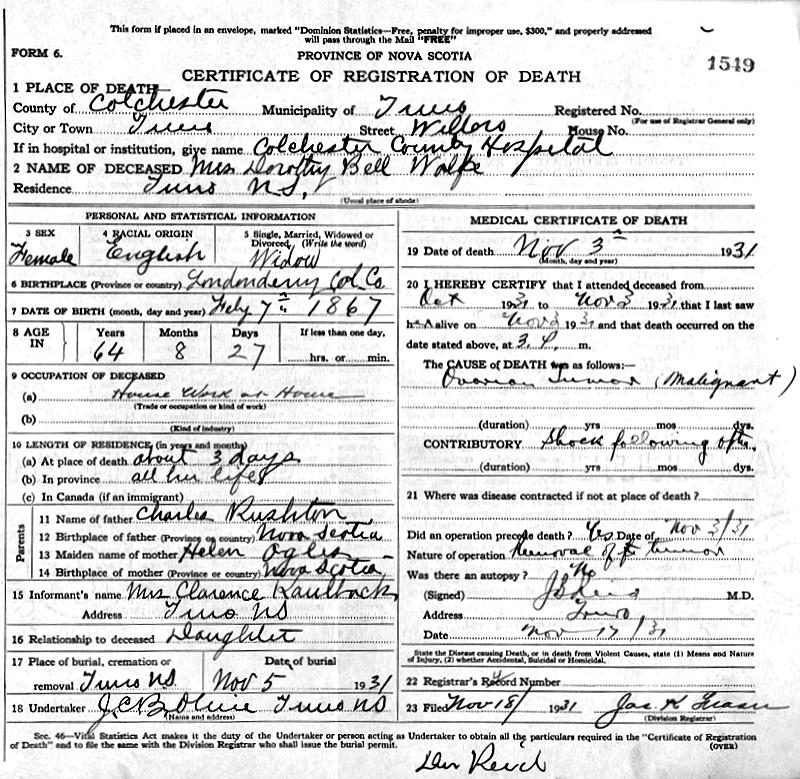 This form if placed in an envelope, marked "Dominion Statistics—Free, penalty for improper use, $300," and properly addressed
will pass through the Mail "FREE"
FORM 6.
PROVINCE OF NOVA SCOTIA
1549
CERTIFICATE OF REGISTRATION OF DEATH
1 PLACE OF DEATH—
County of Colchester Municipality of Truro Registered No.
(For use of Registrar General only)
City or Town Truro Street Willow House No.
If in hospital or institution, give name Colchester County Hospital
2 NAME OF DECEASED Mrs Dorothy Bell Wolfe
Residence Truro N.S.
(Usual place of abode)
PERSONAL AND STATISTICAL INFORMATION
3 SEX 4 RACIAL ORIGIN 5 Single, Married, Widowed or
Divorced, (Write the word)
Female English Widow
6 BIRTHPLACE (Province or country) Londonderry Col. Co.
7 DATE OF BIRTH (month, day and year) Feby 7th 1867
8 AGE IN Years Months Days If less than one day,
64 8 27 hrs. or min.
9 OCCUPATION OF DECEASED
(a) House Work at Home
(Trade or occupation or kind of work)
(b)
(Kind of industry)
10 LENGTH OF RESIDENCE, (in years and months)
(a) At place of death about 3 days
(b) In province all her life
(c) In Canada (if an immigrant)
Parents
11 Name of father Charles Rushton
12 Birthplace of father (Province or country) Nova Scotia
13 Maiden name of mother Helen
14 Birthplace of mother (Province or country) Nova Scotia
15 Informant's name Mrs Clarence Kaulback
Address Truro NS
16 Relationship to deceased Daughter
17 Place of burial, cremation or Date of burial
removal Truro N.S. Nov 5 1931
18 Undertaker J.C.B. Truro NS
(Name and address)
MEDICAL CERTIFICATE OF DEATH
19 Date of death Nov 3rd 1931
(Month, day and year)
20 I HEREBY CERTIFY that I attended deceased from
Oct 1931 to Nov 3 1931 that I last saw
h alive on Nov 3 1931 and that death occurred on the
date stated above, at 3 P. m.
The CAUSE OF DEATH was as follows:—
Ovarian Tumor (Malignant)
(duration) yrs mos dys.
CONTRIBUTORY Shock following
(duration) yrs mos dys.
21 Where was disease contracted if not at place of death?
Did an operation precede death? Yes Date of Nov 3/31
Nature of operation Removal of tumor
Was there an autopsy? No
(Signed) M.D.
Address Truro
Date Nov 17/31
State the Disease causing Death, or in death from Violent Causes, state (1) Means and Nature
of Injury, (2) whether Accidental, Suicidal or Homicidal.
22 Registrar's Record Number
23 Filed Nov 18/ 1931 Jas. K.
(Division Registrar)
Sec. 46—Vital Statistics Act makes it the duty of the Undertaker or person acting as Undertaker to obtain all the particulars required in the "Certificate of Registration
of Death" and to file the same with the Division Registrar who shall issue the burial permit.
(OVER)